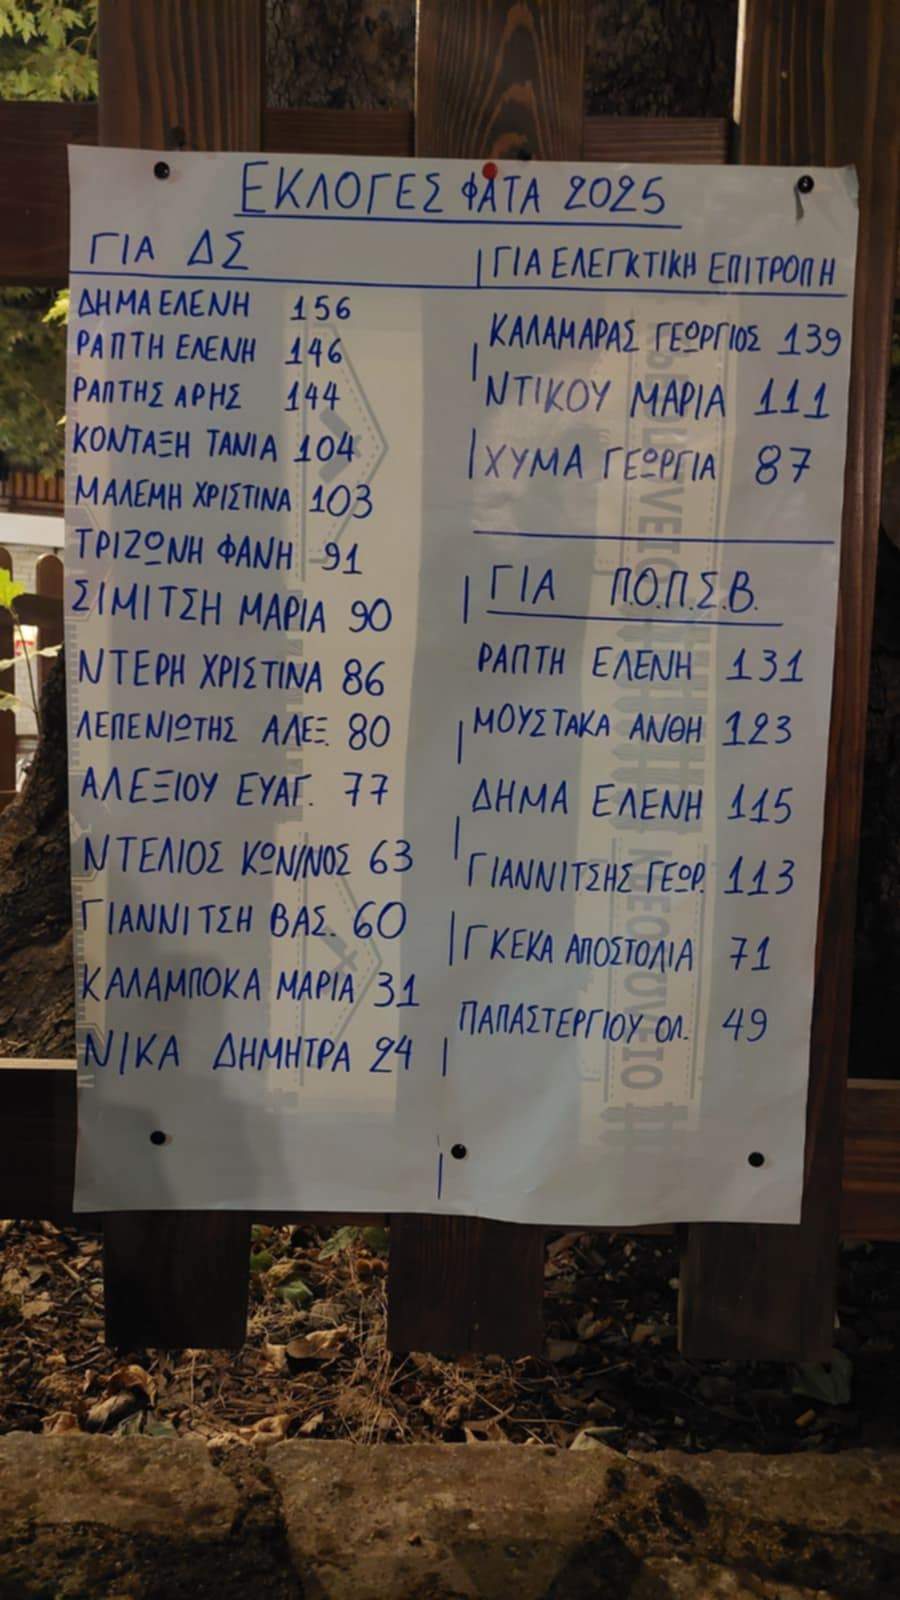 ΕΚΛΟΓΕΣ ΦΑΤΑ 2025
ΓΙΑ ΔΣ
ΔΗΜΑ ΕΛΕΝΗ 156
ΡΑΠΤΗ ΕΛΕΝΗ 146
ΡΑΠΤΗΣ ΑΡΗΣ 144
ΚΟΝΤΑΞΗ ΤΑΝΙΑ 104
ΜΑΛΕΜΗ ΧΡΙΣΤΙΝΑ 103
ΤΡΙΖΩΝΗ ΦΑΝΗ 91
ΣΙΜΙΤΣΗ ΜΑΡΙΑ 90
ΝΤΕΡΗ ΧΡΙΣΤΙΝΑ 86
ΛΕΠΕΝΙΩΤΗΣ ΑΛΕΞ. 80
ΑΛΕΞΙΟΥ ΕΥΑΓ. 77
ΝΤΕΛΙΟΣ ΚΩΝ/ΝΟΣ 63
ΓΙΑΝΝΙΤΣΗ ΒΑΣ. 60
ΚΑΛΑΜΠΟΚΑ ΜΑΡΙΑ 31
ΝΙΚΑ ΔΗΜΗΤΡΑ 24
ΓΙΑ ΕΛΕΓΚΤΙΚΗ ΕΠΙΤΡΟΠΗ
ΚΑΛΑΜΑΡΑΣ ΓΕΩΡΓΙΟΣ 139
ΝΤΙΚΟΥ ΜΑΡΙΑ 111
ΧΥΜΑ ΓΕΩΡΓΙΑ 87
ΓΙΑ Π.Ο.Π.Σ.Β.
ΡΑΠΤΗ ΕΛΕΝΗ 131
ΜΟΥΣΤΑΚΑ ΑΝΘΗ 123
ΔΗΜΑ ΕΛΕΝΗ 115
ΓΙΑΝΝΙΤΣΗΣ ΓΕΩΡ. 113
ΓΚΕΚΑ ΑΠΟΣΤΟΛΙΑ 71
ΠΑΠΑΣΤΕΡΓΙΟΥ ΟΛ. 49